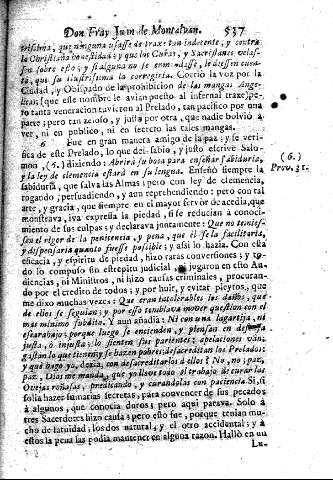 Don Fray Juan de Montalvan. 537
tristina, que ninguna usasse de traxe tan indecente, y contra
la Christiana honestidad; y que los Curas, y Sacristanes velas-
sen sobre esto; y si alguna no se enmendasse, le diessen cuen-
ta, que su Ilustrissima la corregiria. Corriò la voz por la
Ciudad, y Obispado de la prohibicion de las mangas Ange-
licas; (que este nombre le avian puesto al infernal traxe) pe-
ro tanta veneracion tuvieron al Prelado, tan pacifico por una
parte; pero tan zeloso, y justo por otra, que nadie bolviò à
ver, ni en publico, ni en secreto las tales mangas.
6 Fue en gran manera amigo de la paz; y se verifi-
ca de este Prelado, lo que del sabio, y justo escrive Salo-
mon, (6.) diziendo: Abrirà su boca para enseñar sabiduria,
y la ley de clemencia estarà en su lengua. Enseñò siempre la
sabiduria, que salva las Almas; pero con ley de clemencia,
rogando, persuadiendo, y aun reprehendiendo; pero con tal
arte, y gracia, que siempre en el mayor fervor de acedia, que
mostrava, iva expressa la piedad, si se reducian à conoci-
miento de sus culpas; y declarava juntamente: Que no temies-
sen el rigor de la penitencia, y pena, que èl se la facilitaria,
y dispensaria quanto fuesse possible; y assi lo hazia. Con esta
eficacia, y espiritu de piedad, hizo raras conversiones; y to-
do lo compuso sin estrepitu judicial
diencias, ni Ministros, ni hizo causas criminales, procuran-
do por el credito de todos; y por huir, y evitar pleytos, que
me dixo muchas vezes: Que eran intolerables los daños, que
de ellos se seguian; y por esso temblava mover question con el
mas minimo subdito. Y aun añadia: Ni con una lagartija, ni
escarabajo; porque luego se encienden, y piensan en defensa
justa, ò injusta: lo sienten sus parientes; apelaciones vàn;
gastan lo que tienen, y se hazen pobres; desacreditan los Prelados;
y què hago yo, dezia, con desacreditarlos à ellos? No, no; paz,
paz. Dios me manda, que yo lleve todo el trabajo de curar las
Ovejas roñosas, predicando, y curandolas con paciencia. Si, si
solia hazer sumarias secretas, para convencer de sus pecados
à algunos, que conocia duros; pero aqui parava. Solo à
tres Sacerdotes hizo causa; pero esto fue, porque tenian mu-
cho de fatuidad; los dos natural, y el otro accidental; y à
estos la pena las podia mantener en alguna razon. Hallò en un
Lu-
(6.)
Prov. 31.